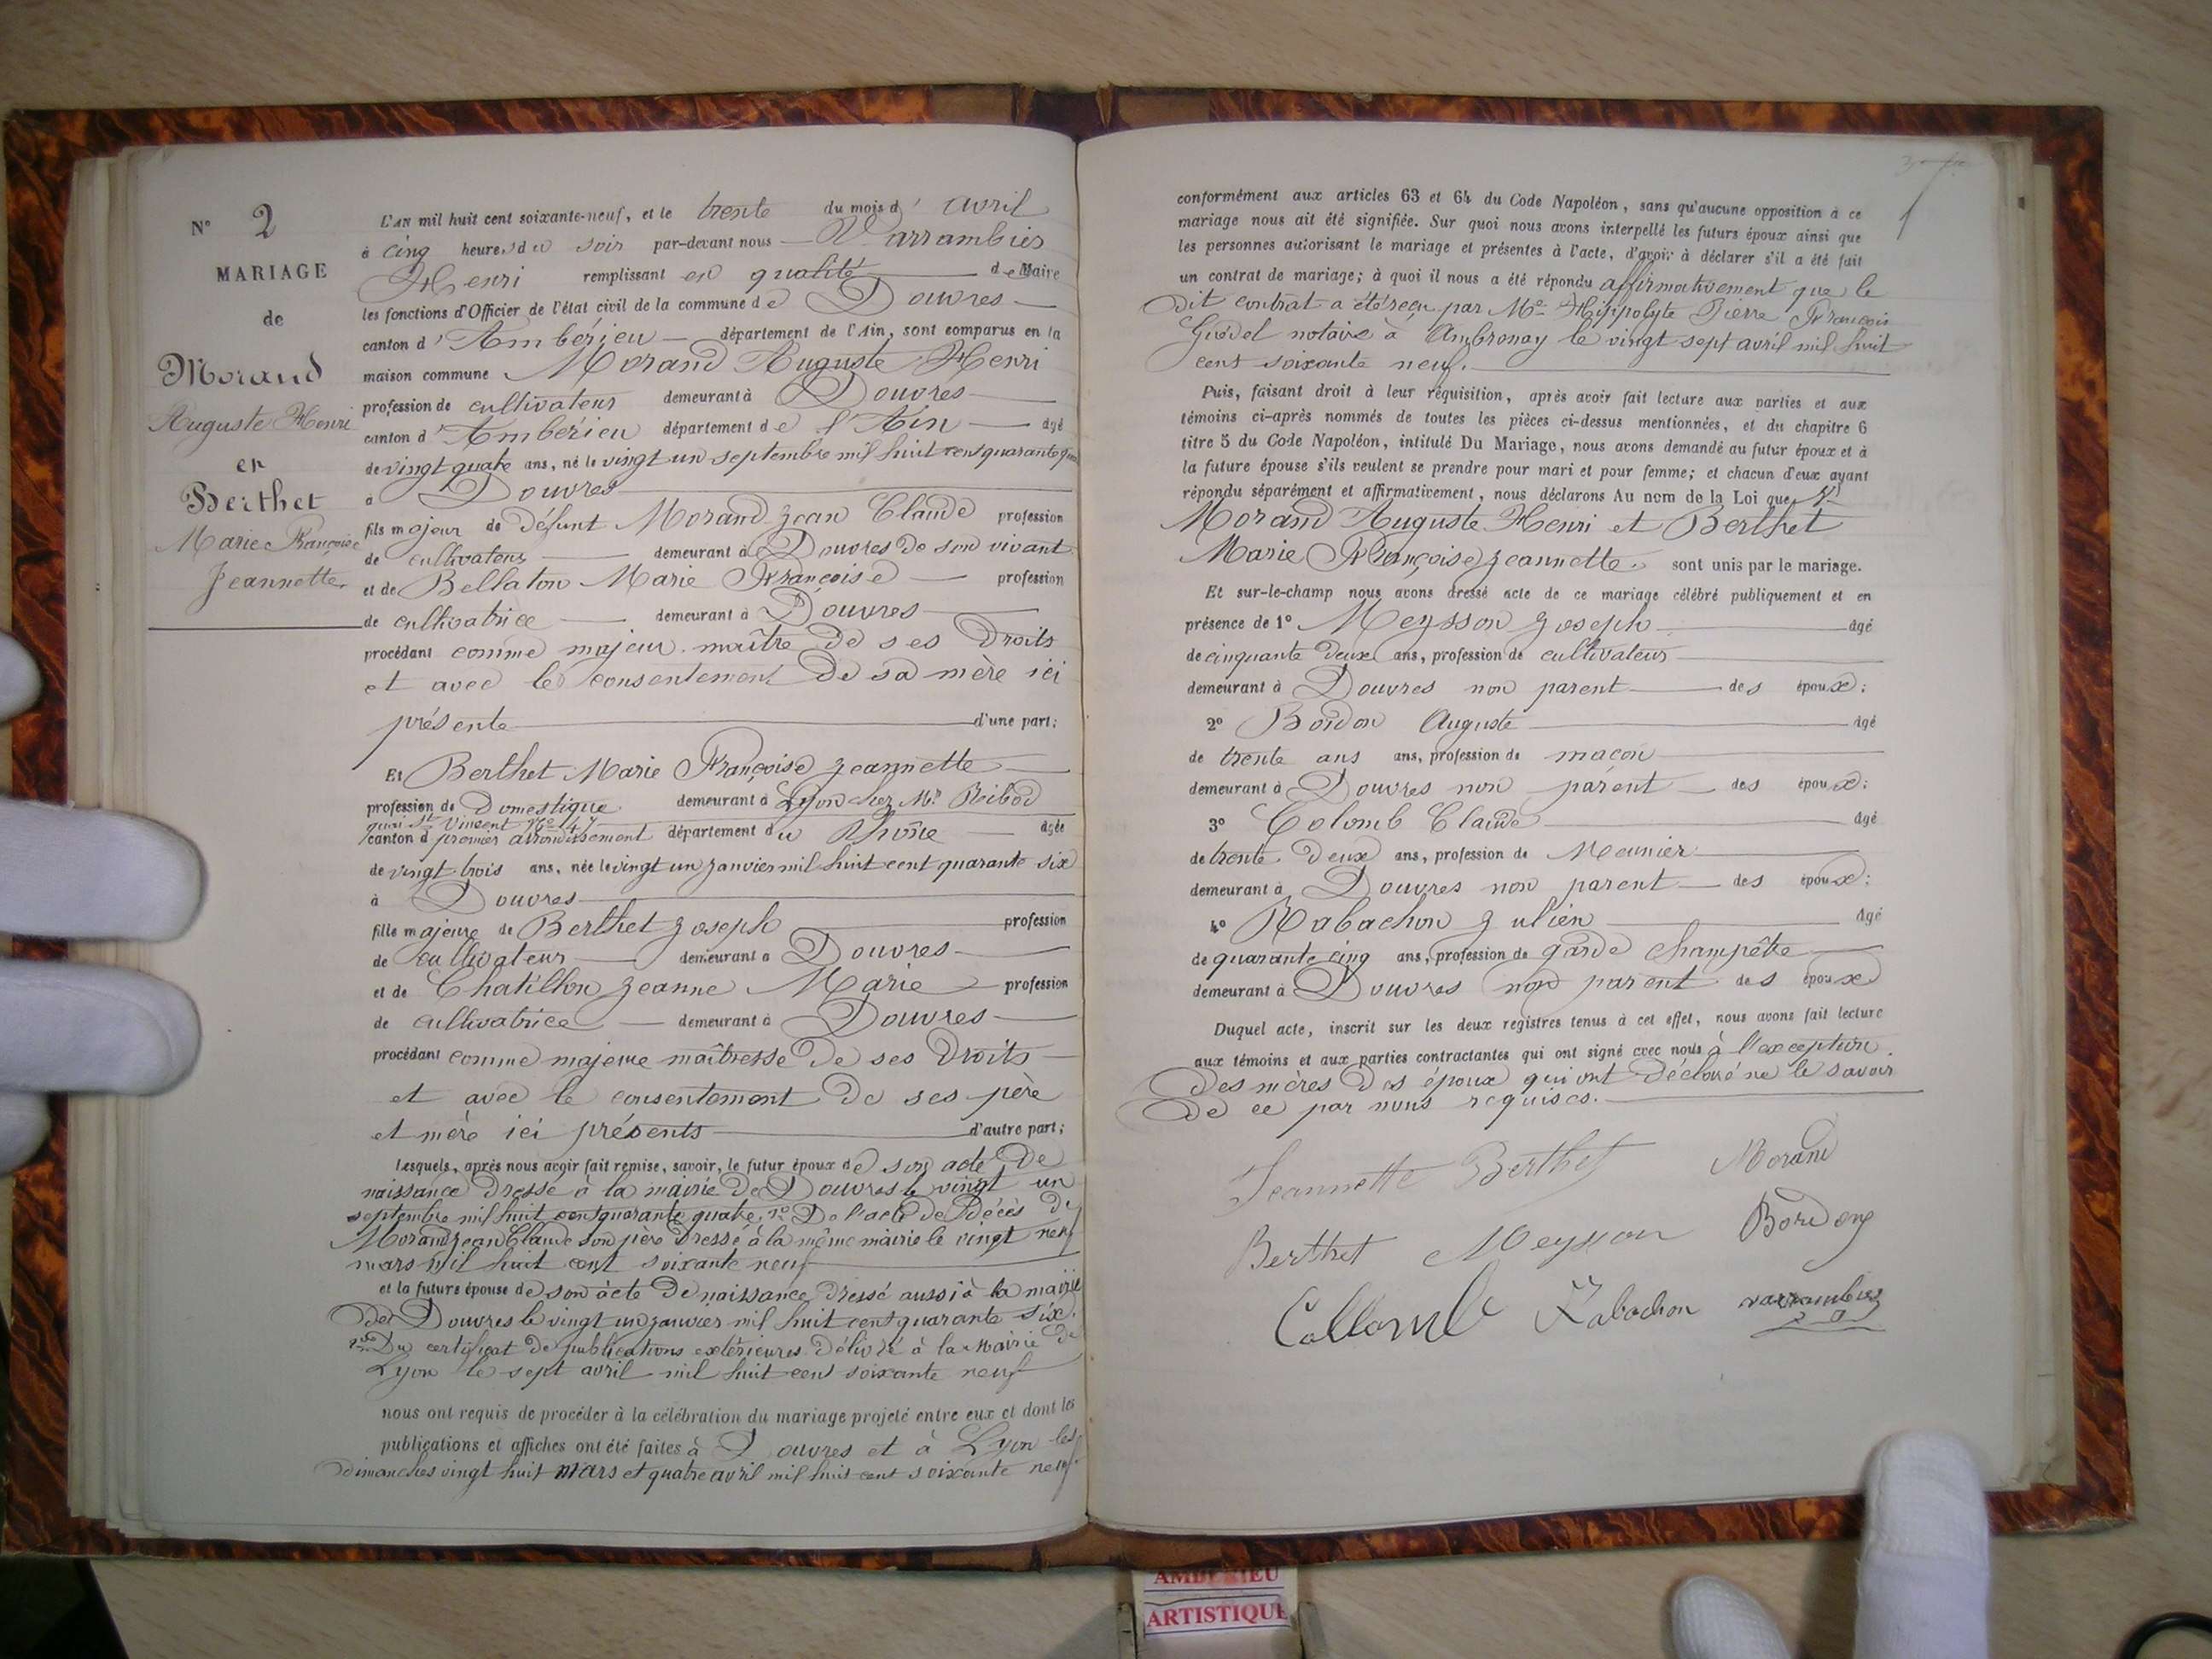 N° 2
MARIAGE
de
Morand
Auguste Henri
et
Berthet
Marie Françoise
Jeannette
L'AN mil huit cent soixante-neuf, et le trente du mois d' avril
à cinq heures du soir par-devant nous Varrambier
Henri remplissant en qualité de Maire
les fonctions d'Officier de l'état civil de la commune de Douvres
canton d'Ambérieu département de l'Ain, sont comparus en la
maison commune Morand Auguste Henri
profession de cultivateur demeurant à Douvres
canton d'Ambérieu département de l'Ain âgé
de vingt quatre ans, né le vingt un septembre mil huit cent quarante quatre
à Douvres
fils majeur de défunt Morand Jean Claude profession
de cultivateur demeurant à Douvres de son vivant
et de Bellaton Marie Françoise profession
de cultivatrice demeurant à Douvres
procédant comme majeur maître de ses droits
et avec le consentement de sa mère ici
présente d'une part;
Et Berthet Marie Françoise Jeannette
profession de domestique demeurant à Lyon chez Mr Ribod
quai St Vincent No 47
canton d premier arrondissement département du Rhône âgée
de vingt trois ans, née le vingt un janvier mil huit cent quarante six
à Douvres
fille majeure de Berthet Joseph profession
de cultivateur demeurant à Douvres
et de Chatillon Jeanne Marie profession
de cultivatrice demeurant à Douvres
procédant comme majeure maîtresse de ses droits
et avec le consentement de ses père
et mère ici présents d'autre part;
Lesquels, après nous avoir fait remise, savoir, le futur époux de son acte de
naissance dressé à la mairie de Douvres le vingt un
septembre mil huit cent quarante quatre, 2º De l'acte de décès de
Morand Jean Claude son père dressé à la même mairie le vingt neuf
mars mil huit cent soixante neuf
et la future épouse de son acte de naissance dressé aussi à la mairie
de Douvres le vingt un janvier mil huit cent quarante six.
2º Du certificat de publications extérieures délivré à la mairie de
Lyon le sept avril mil huit cent soixante neuf
nous ont requis de procéder à la célébration du mariage projeté entre eux et dont les
publications et affiches ont été faites à Douvres et à Lyon les
dimanches vingt huit mars et quatre avril mil huit cent soixante neuf
conformément aux articles 63 et 64 du Code Napoléon, sans qu'aucune opposition à ce
mariage nous ait été signifiée. Sur quoi nous avons interpellé les futurs époux ainsi que
les personnes autorisant le mariage et présentes à l'acte, d'avoir à déclarer s'il a été fait
un contrat de mariage; à quoi il nous a été répondu affirmativement que le
dit contrat a été reçu par Me Hippolyte Pierre François
Guédel notaire à Ambronay le vingt sept avril mil huit
cent soixante neuf.
Puis, faisant droit à leur réquisition, après avoir fait lecture aux parties et aux
témoins ci-après nommés de toutes les pièces ci-dessus mentionnées, et du chapitre 6
titre 5 du Code Napoléon, intitulé Du Mariage, nous avons demandé au futur époux et à
la future épouse s'ils veulent se prendre pour mari et pour femme; et chacun d'eux ayant
répondu séparément et affirmativement, nous déclarons Au nom de la Loi que
Morand Auguste Henri et Berthet
Marie Françoise Jeannette sont unis par le mariage.
Et sur-le-champ nous avons dressé acte de ce mariage célébré publiquement et en
présence de 1° Meysson Joseph âgé
de cinquante deux ans, profession de cultivateur
demeurant à Douvres non parent des époux;
2° Bordon Auguste âgé
de trente ans ans, profession de maçon
demeurant à Douvres non parent des époux;
3° Colomb Claude âgé
de trente deux ans, profession de Meunier
demeurant à Douvres non parent des époux;
4° Rabachon Julien âgé
de quarante cinq ans, profession de garde champêtre
demeurant à Douvres non parent des époux
Duquel acte, inscrit sur les deux registres tenus à cet effet, nous avons fait lecture
aux témoins et aux parties contractantes qui ont signé avec nous à l'exception
des mères des époux qui ont déclaré ne le savoir
de ce par nous requises.
Jeannette Berthet Morand
Berthet Meysson Bordon
Collomb Rabachon Varrambier
AMBERIEU
ARTISTIQUE